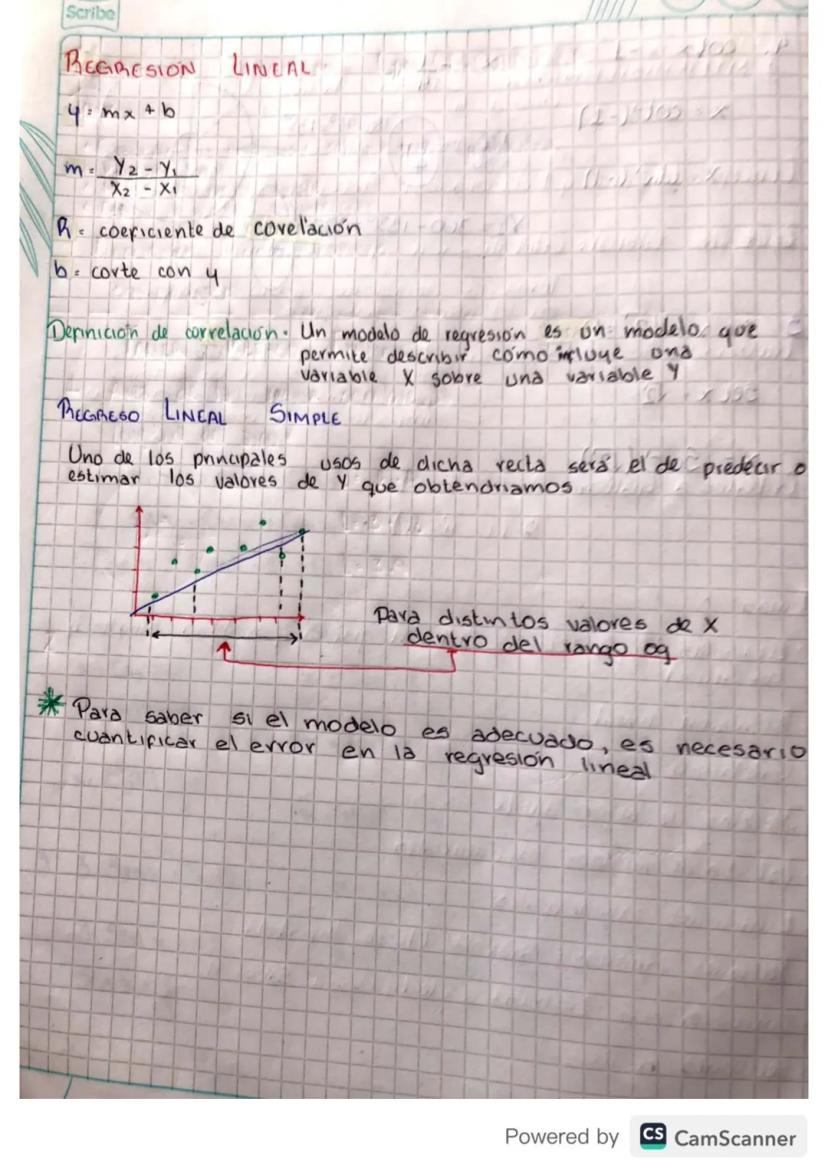 Scribe
REGRESIÓN LINEAL
y = mx + b
m = Y2 - Y1
X2 - X1
R = coeficiente de correlación
b = corte con y
Definición de correlación. Un modelo de regresión es un modelo que
permite describir cómo influye una
variable X sobre una variable Y
REGRESO LINEAL SIMPLE
Uno de los principales usos de dicha recta será el de predecir o
estimar los valores de Y que obtendriamos
Para distintos valores de X
dentro del rango oq
* Para saber si el modelo es adecuado, es necesario
cuantificar el error en la regresión lineal
Powered by CS CamScanner